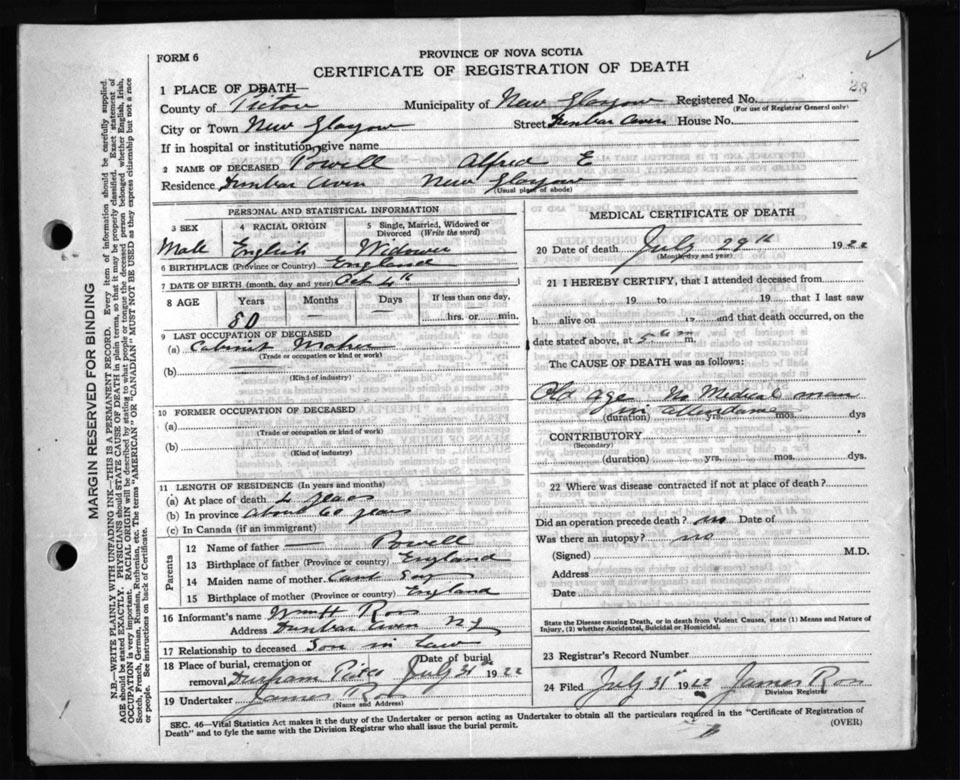 FORM 6
PROVINCE OF NOVA SCOTIA
CERTIFICATE OF REGISTRATION OF DEATH
28
1 PLACE OF DEATH—
County of Pictou Municipality of New Glasgow Registered No.
(For use of Registrar General only)
City or Town New Glasgow Street Dunbar Aven House No.
If in hospital or institution, give name
2 NAME OF DECEASED Powell Alfred E
Residence Dunbar Aven New Glasgow
(Usual place of abode)
PERSONAL AND STATISTICAL INFORMATION
3 SEX 4 RACIAL ORIGIN 5 Single, Married, Widowed or Divorced (Write the word)
Male English Widower
6 BIRTHPLACE (Province or Country) England
7 DATE OF BIRTH (month, day and year) Oct 4th
8 AGE Years Months Days If less than one day,
80 — — hrs. or min.
9 LAST OCCUPATION OF DECEASED
(a) Cabinet Maker
(Trade or occupation or kind or work)
(b)
(Kind of industry)
10 FORMER OCCUPATION OF DECEASED
(a)
(Trade or occupation or kind or work)
(b)
(Kind of industry)
11 LENGTH OF RESIDENCE (In years and months)
(a) At place of death 4 years
(b) In province about 60 years
(c) In Canada (if an immigrant)
Parents
12 Name of father — Powell
13 Birthplace of father (Province or country) England
14 Maiden name of mother Cant Say
15 Birthplace of mother (Province or country) England
16 Informant's name Ross
Address Dunbar Aven N G
17 Relationship to deceased Son in Law
18 Place of burial, cremation or removal Durham Pictou Date of burial July 31st 1922
19 Undertaker James Ross
(Name and Address)
MEDICAL CERTIFICATE OF DEATH
20 Date of death July 29th 1922
(Month, day and year)
21 I HEREBY CERTIFY, that I attended deceased from
19 to 19 that I last saw
h alive on 19 and that death occurred, on the
date stated above, at 5 am m.
The CAUSE OF DEATH was as follows:
Old age No Medical man
in attendance
(duration) yrs. mos. dys
CONTRIBUTORY
(Secondary)
(duration) yrs. mos. dys.
22 Where was disease contracted if not at place of death?
Did an operation precede death? no Date of
Was there an autopsy? no
(Signed) M.D.
Address
Date
State the Disease causing Death, or in death from Violent Causes, state (1) Means and Nature of Injury, (2) whether Accidental, Suicidal or Homicidal.
23 Registrar's Record Number
24 Filed July 31st 1922 James Ross
Division Registrar
SEC. 46—Vital Statistics Act makes it the duty of the Undertaker or person acting as Undertaker to obtain all the particulars required in the "Certificate of Registration of
Death" and to fyle the same with the Division Registrar who shall issue the burial permit.
(OVER)
MARGIN RESERVED FOR BINDING
N.B.—WRITE PLAINLY WITH UNFADING INK—THIS IS A PERMANENT RECORD. Every item of information should be carefully supplied.
AGE should be stated EXACTLY. PHYSICIANS should STATE CAUSE OF DEATH in plain terms, so that it may be properly classified. Exact statement of
OCCUPATION is very important. RACIAL ORIGIN will be described by stating to what people or tongue the deceased person belonged whether English, Irish,
Scotch, French, German, Russian, Ruthenian, etc. The terms "AMERICAN" OR "CANADIAN" MUST NOT BE USED as they express citizenship but not a race
or people. See instructions on back of Certificate.